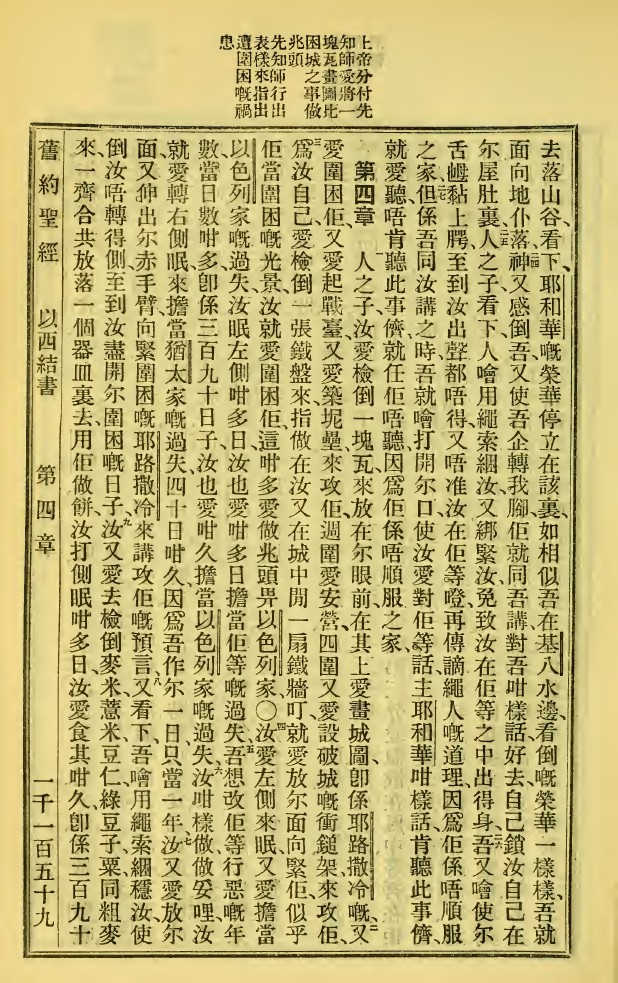 上帝分付先
知師愛將一
塊瓦畫圖比
困城之事做
兆頭
先知師行出
表樣來指出
遭圍困嘅禍
患
去落山谷、看下、耶和華嘅榮華停立在該裏、如相似吾在基八水邊、看倒嘅榮華一樣樣、吾就
面向地仆落、神又感倒吾、又使吾企轉我腳、佢就同吾講、對吾咁樣話、好去自己鎖汝自己在
尔屋肚裏、人之子看下、人噲用繩索綑汝、又綁緊汝、免致汝在佢等之中出得身、吾又噲使尔
舌黏上腭、至到汝出聲都唔得、又唔准汝在佢等嶝再傳讁繩人嘅道理、因爲佢係唔順服
之家、但係吾同汝講之時、吾就噲打開尔口、使汝愛對佢等話、主耶和華咁樣話、肯聽此事儕、
就愛聽、唔肯聽此事儕、就任佢唔聽、因爲佢係唔順服之家、
第四章 人之子、汝愛檢倒一塊瓦來、放在尔眼前、在其上愛畫城圖、卽係耶路撒冷嘅、又
愛圍困佢、又愛起戰臺、又愛築坭壘來攻佢、週圍愛安營、四圍又愛設破城嘅衝鎚架來攻佢、
爲汝自己愛檢倒一張鐵盤來、指做在汝又在城中閒一扇鐵牆叮、就愛放尔面向緊佢、似乎
佢當圍困嘅光景、汝就愛圍困佢、這咁多愛做兆頭畀以色列家、〇汝愛左側來眠、又愛擔當
以色列家嘅過失、汝眠左側咁多日、汝也愛咁多日擔當佢等嘅過失、吾想改佢等行惡嘅年
數、當日數咁多、卽係三百九十日子、汝也愛咁久擔當以色列家嘅過失、汝咁樣做做妥哩、汝
就愛轉右側眠、來擔當猶太家嘅過失、四十日咁久、因爲吾作尔一日、只當一年、汝又愛放尔
面、又伸出尔赤手臂、向緊圍困嘅耶路撒冷、來講攻佢嘅預言、又看下、吾噲用繩索綑穩汝、使
倒汝唔轉得側、至到汝盡開尔圍困嘅日子、汝又愛去檢倒麥米薏米豆仁綠豆子、粟同粗麥
來、一齊合共放落一個器皿裏去、用佢做餅、汝打側眠咁多日、汝愛食其咁久、卽係三百九十
舊約聖經 以西結書 第四章 一千一百五十九